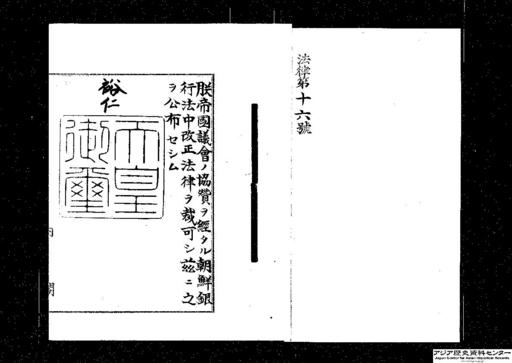 法律第十六號
朕帝國議會ノ協贊ヲ經タル朝鮮銀
行法中改正法律ヲ裁可シ茲ニ之
ヲ公布セシム
裕仁
天皇
御璽
内
閣
アジア歴史資料センター
Japan Center for Asian Historical Records